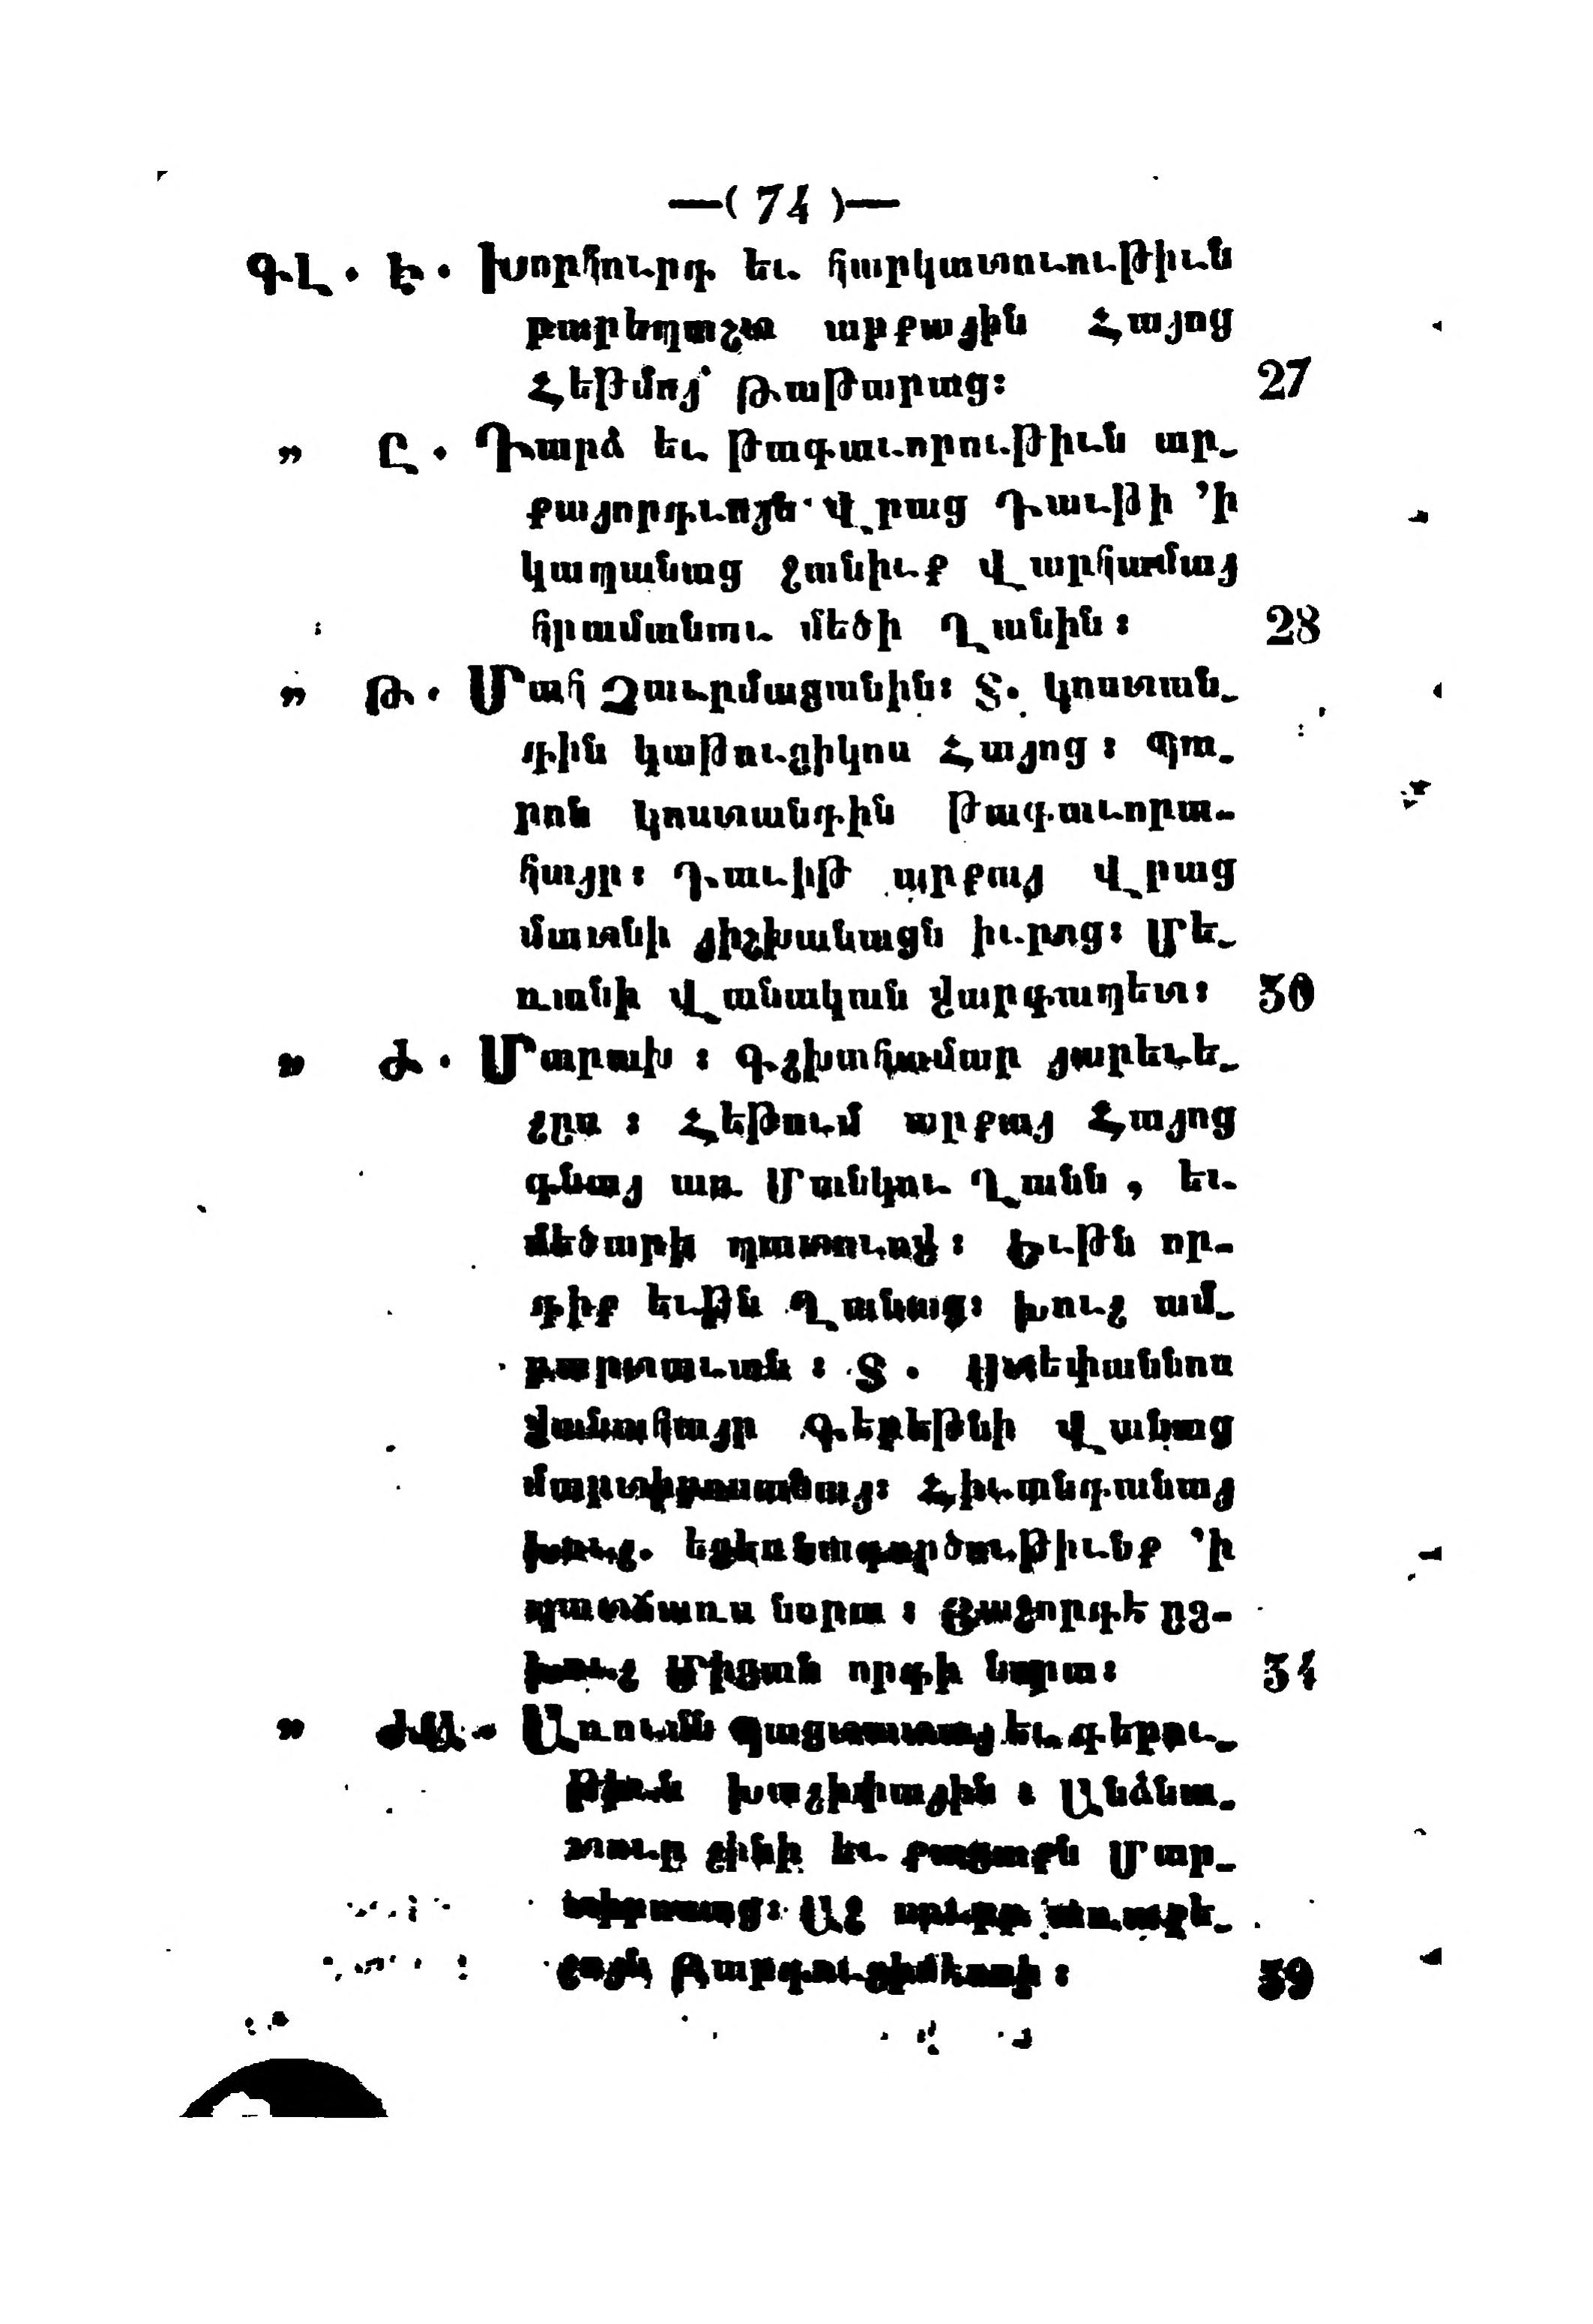 —( 74 )—
ԳԼ. Է. Խորհուրդ եւ հարկատուութիւն
բարեպաշտ արքային Հայոց
Հեթմոյ՝ Թաթարաց։ 27
„ Ը. Դարձ եւ թագաւորութիւն ար-
քայորդւոյն Վրաց Դաւթի ՚ի
կապանաց ջանիւք Վարհամայ
հրամանաւ մեծի Ղանին։ 28
„ Թ. Մահ Չաւրմացանին։ Տ. Կոստան-
դին կաթուղիկոս Հայոց։ Պա-
րոն Կոստանդին թագաւորա-
հայր։ Դաւիթ արքայ Վրաց
մատնի յիշխանացն իւրոց։ Մե-
ռանի Վանական վարդապետ։ 30
„ Ժ. Մարախ։ Գլխահամար յարեւե-
լըս։ Հեթում արքայ Հայոց
գնայ առ Մանկու Ղանն, եւ
մեծարի պատուով։ Եւթն որ-
դիք եւթն Ղանաց։ Խուլ ամ-
բարտաւան։ Տ. Ստեփաննոս
վանահայր Գերեթնի վանաց
մարտիրոսանայ։ Հիւանդանայ
Խուլ. եղեռնագործութիւնք ՚ի
պատճառս նորա։ Յաջորդէ ըզ-
Խուլ Միղան որդի նորա։ 34
„ ԺԱ. Առումն Պաղտատայ եւ գերու-
թիւն խալիփային։ Անձնա-
տուր լինի եւ քաղաքն Մար-
տիրոսաց։ Աջ սուրբ առաքե-
լոյն Բարդուղիմէոսի։ 39